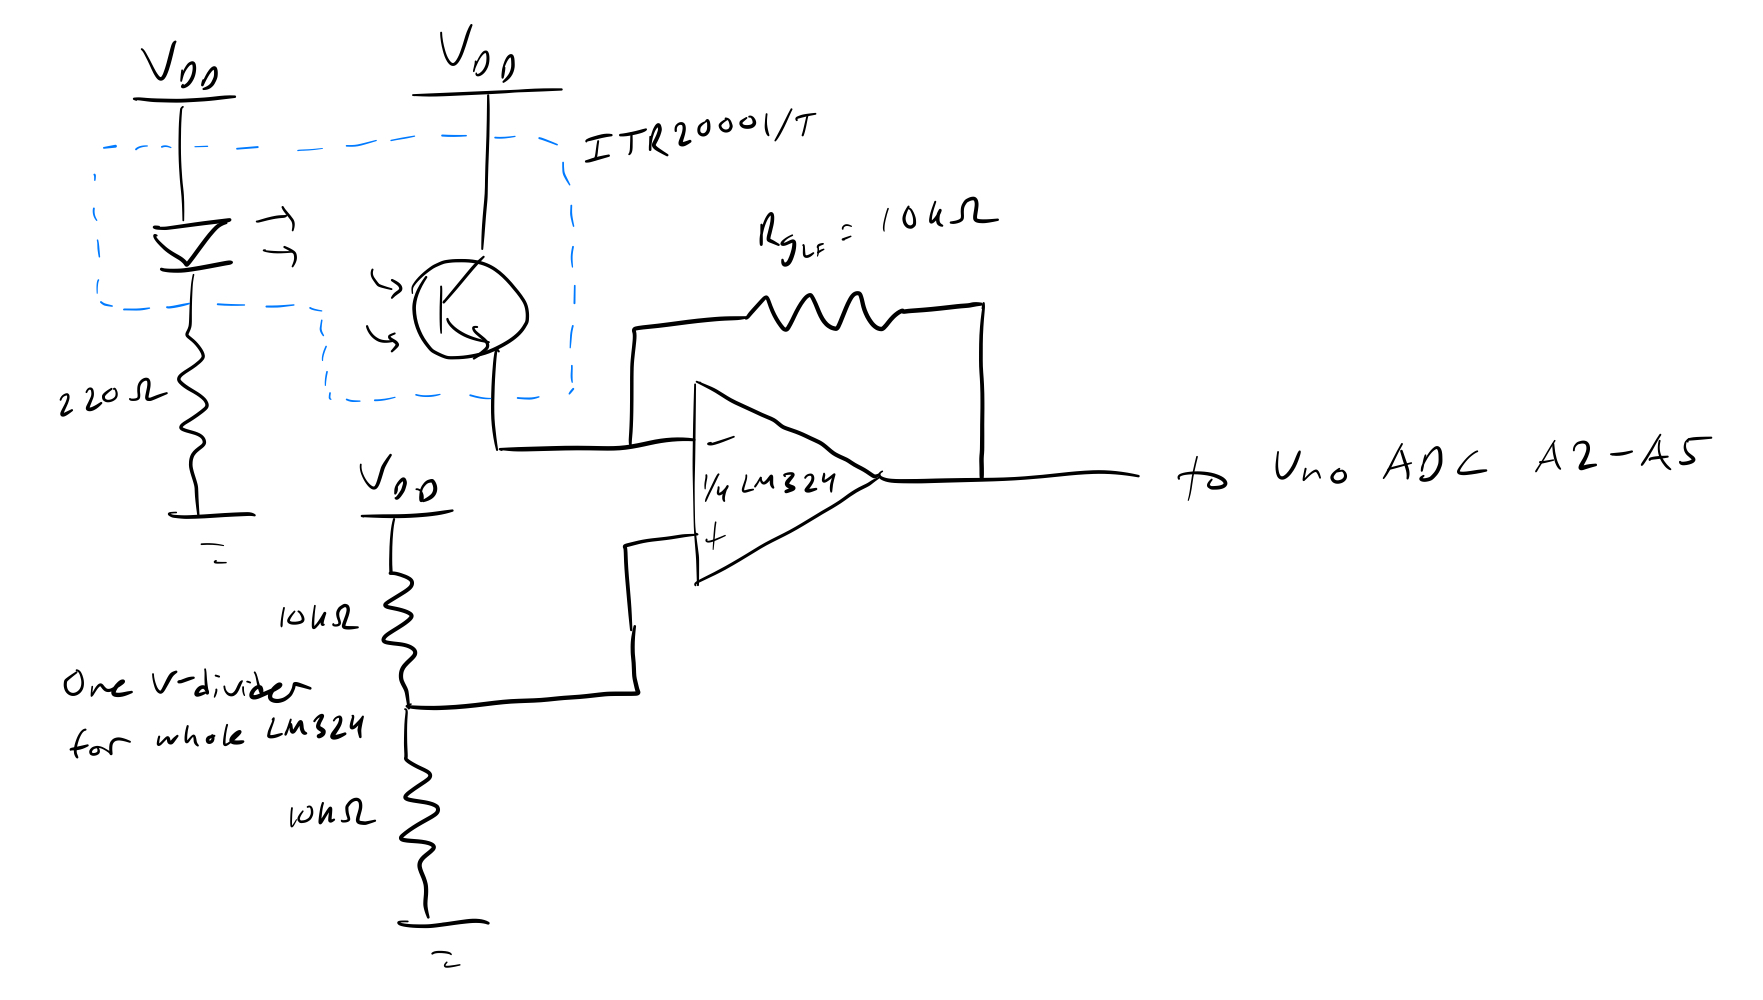 VDD
VDD
ITR20001/T
RgLF = 10kΩ
220Ω
-
1/4 LM324
+
to Uno ADC A2-A5
VDD
10kΩ
One V-divider
for whole LM324
10kΩ